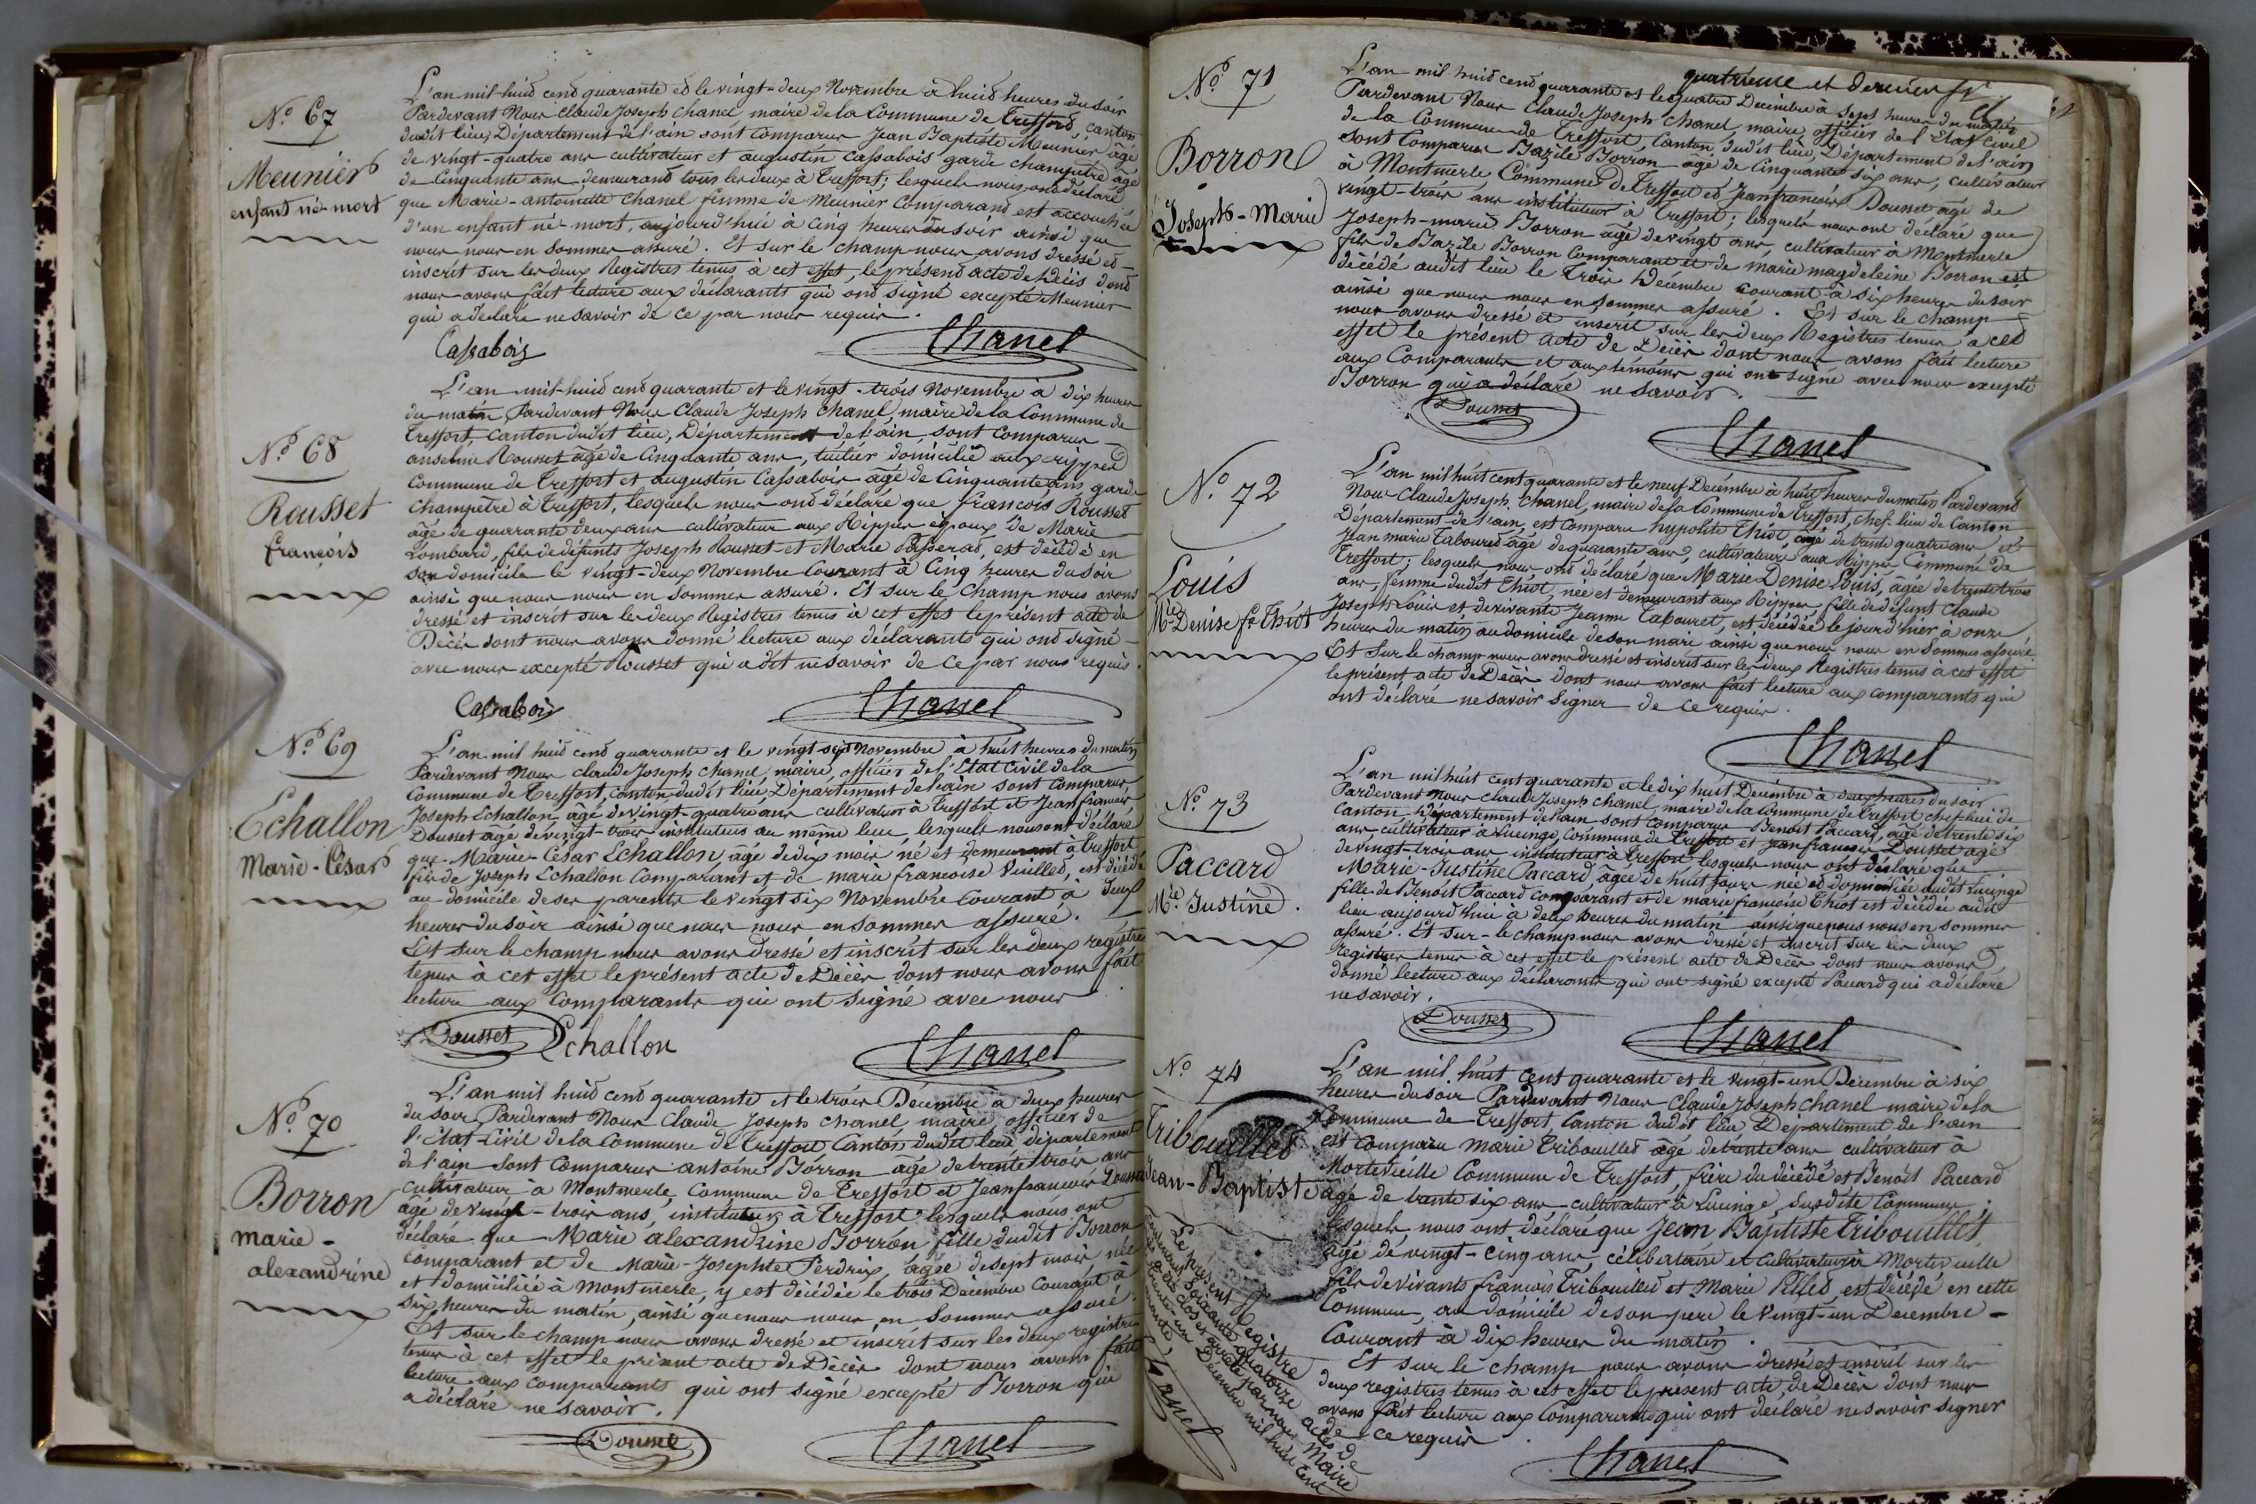 N.º 67
Meunier
enfant né-mort
L'an mil-huit cent quarante et le vingt-deux Novembre à huit heures du soir
Pardevant Nous Claude Joseph Chanel maire de la Commune de Treffort, canton
dudit lieu, Département de l'ain sont comparus Jean Baptiste Meunier âgé
de vingt-quatre ans cultivateur et augustin Cassabois garde champêtre âgé
de Cinquante ans demeurant tous les deux à Treffort; lesquels nous ont déclaré
que Marie-antoinette Chanel femme de Meunier Comparant est accouchée
d'un enfant né-mort, aujourd'hui à cinq heures du soir ainsi que
nous nous en sommes assuré. Et sur le champ nous avons dressé et
inscrit sur les deux Registres tenus à cet effet, le présent acte de Décès dont
nous avons fait lecture aux déclarants qui ont signé excepté Meunier
qui a déclaré ne savoir de ce par nous requis.
Cassabois Chanel
N.º 68
Rousset
françois
L'an mil-huit cent quarante et le vingt-trois Novembre à dix heures
du matin, Pardevant Nous Claude Joseph Chanel, maire de la Commune de
Treffort, canton dudit lieu, Département de l'ain, sont comparus
anselme Rousset âgé de Cinquante ans, tuilier domicilié aux rippes
Commune de Treffort et augustin Cassabois âgé de Cinquante ans garde
champêtre à Treffort, lesquels nous ont déclaré que françois Rousset
âgé de quarante deux ans cultivateur aux Rippes époux de Marie
Lombard, fils de défunts Joseph Rousset et Marie Passerat, est décédé en
son domicile le vingt-deux Novembre Courant à Cinq heures du soir
ainsi que nous nous en sommes assuré. Et sur le Champ nous avons
dressé et inscrit sur les deux Registres tenus à cet effet le présent acte de
Décès dont nous avons donné lecture aux déclarants qui ont signé
avec nous excepté Rousset qui a dit ne savoir de ce par nous requis.
Cassabois Chanel
N.º 69
Echallon
Marie-César
L'an mil huit cent quarante et le vingt-sept Novembre à huit heures du matin
Pardevant Nous Claude Joseph Chanel, maire, officier de l'Etat Civil de la
Commune de Treffort, canton dudit lieu Département de l'ain sont comparus,
Joseph Echallon âgé de vingt-quatre ans cultivateur à Treffort et Jean françois
Dousset âgé de vingt trois instituteur au même lieu, lesquels nous ont déclaré
que Marie-César Echallon, âgé de dix mois né et demeurant à Treffort
fils de Joseph Echallon Comparant et de marie francoise Vuillod, est décédé
au domicile de ses parents le vingt six Novembre Courant à deux
heures du soir ainsi que nous nous en sommes assuré.
Et sur le champ nous avons dressé et inscrit sur les deux registres
tenus à cet effet le présent acte de Décès dont nous avons fait
lecture aux Comparants qui ont signé avec nous
Dousset Echallon Chanel
N.º 70
Borron
marie-
alexandrine
L'an mil huit cent quarante et le trois Décembre à deux heures
du soir Pardevant Nous Claude Joseph chanel, maire, officier de
l'état Civil de la Commune de Treffort Canton dudit lieu département
de l'ain sont Comparus antoine Borron âgé de trente trois ans
Cultivateur à Montmerle Commune de Treffort et Jean françois Dousset
âgé de vingt-trois ans, instituteur à Treffort lesquels nous ont
déclaré que Marie alexandrine Borron fille dudit Borron
Comparant et de Marie-Josephte Perdrix, âgée de sept mois née
et domiciliée à Montmerle, y est décédée le trois Décembre Courant à
six heures du matin, ainsi que nous nous en sommes assuré.
Et sur le champ nous avons dressé et inscrit sur les deux registres
tenus à cet effet le présent acte de Décès dont nous avons fait
lecture aux comparants qui ont signé excepté Borron qui
a déclaré ne savoir.
Dousset Chanel
quatrième et dernier
N.º 71
Borron
Joseph-Marie
L'an mil huit cent quarante et le quatre Décembre à sept heures du matin
Pardevant Nous Claude Joseph Chanel, maire, officier de l'Etat Civil
de la Commune de Treffort, Canton dudit lieu, Département de l'ain
sont Comparus Bazile Borron âgé de Cinquante six ans, cultivateur
à Montmerle Commune de Treffort et Jean françois Dousset âgé de
vingt-trois ans instituteur à Treffort; lesquels nous ont déclaré que
Joseph-marie Borron âgé de vingt ans, cultivateur à Montmerle
fils de Bazile Borron Comparant et de marie magdeleine Borron est
décédé audit lieu le trois Décembre courant à six heures du soir
ainsi que nous nous en sommes assuré. Et sur le champ
nous avons dressé et inscrit sur les deux Registres tenus à cet
effet le présent acte de Décès dont nous avons fait lecture
aux Comparants et aux témoins qui ont signé avec nous excepté
Borron qui a déclaré ne savoir.
Dousset Chanel
N.º 72
Louis
M.ie Denise f.e Thiot
L'an mil huit cent quarante et le neuf Décembre à huit heures du matin Pardevant
Nous Claude Joseph Chanel, maire de la Commune de Treffort, chef-lieu de Canton
Département de l'ain, est comparu hypolite Thiot, âgé de trente quatre ans et
Jean marie Tabouret âgé de quarante ans, cultivateurs aux Rippes Commune de
Treffort; lesquels nous ont déclaré que Marie Denise Louis, âgée de trente trois
ans, femme dudit Thiot, née et demeurant aux Rippes, fille de défunt Claude
Joseph Louis et de vivante Jeanne Tabouret, est décédée le jour d'hier à onze
heures du matin au domicile de son mari ainsi que nous nous en sommes assuré.
Et sur le champ nous avons dressé et inscrit sur les deux Registres tenus à cet effet
le présent acte de Décès dont nous avons fait lecture aux comparants qui
ont déclaré ne savoir signer de ce requis.
Chanel
N.º 73
Paccard
M.ie Justine.
L'an mil huit cent quarante et le dix huit Décembre à deux heures du soir
Pardevant nous Claude Joseph Chanel, maire de la Commune de Treffort chef-lieu de
Canton, Département de l'ain sont Comparus Benoit Paccard, âgé de trente six
ans cultivateur à Lucinge, Commune de Treffort et jean françois Dousset âgé
de vingt-trois ans instituteur à Treffort lesquels nous ont déclaré que
Marie-Justine Paccard âgée de huit jours née et domiciliée audit Lucinge
fille de Benoit Paccard comparant et de marie francoise Thiot est décédée audit
lieu aujourd'hui à deux heures du matin ainsi que nous nous en sommes
assuré. Et sur-le champ nous avons dressé et inscrit sur les deux
Registres tenus à cet effet le présent acte de Décès dont nous avons
donné lecture aux déclarants qui ont signé excepté Paccard qui a déclaré
ne savoir.
Dousset Chanel
N.º 74
Tribouillet
Jean-Baptiste
L'an mil huit cent quarante et le vingt-un Décembre à six
heures du soir Pardevant Nous Claude Joseph Chanel maire de la
Commune de Treffort, Canton dudit lieu Département de l'ain
est Comparu Marie Tribouillet âgé de trente ans cultivateur à
Morteveille Commune de Treffort, frère du décédé et Benoit Paccard
âgé de trente six ans cultivateur à Lucinge, susdite Commune;
lesquels nous ont déclaré que Jean Baptiste Tribouillet
âgé de vingt-cinq ans, célibataire et Cultivateur à Morteveille
fils de vivants francois Tribouillet et Marie Pillod, est décédé en cette
Commune, au domicile de son pere le vingt-un Decembre
Courant à dix heures du matin.
Et sur le champ nous avons dressé et inscrit sur les
deux registres tenus à cet effet le présent acte de Décès dont nous
avons fait lecture aux Comparants qui ont déclaré ne savoir signer
de ce requis
Chanel
Le présent Registre
contenant soixante quatorze actes de
été clos et arrêté par nous Maire
Décembre mil huit cent
quarante
Chanel